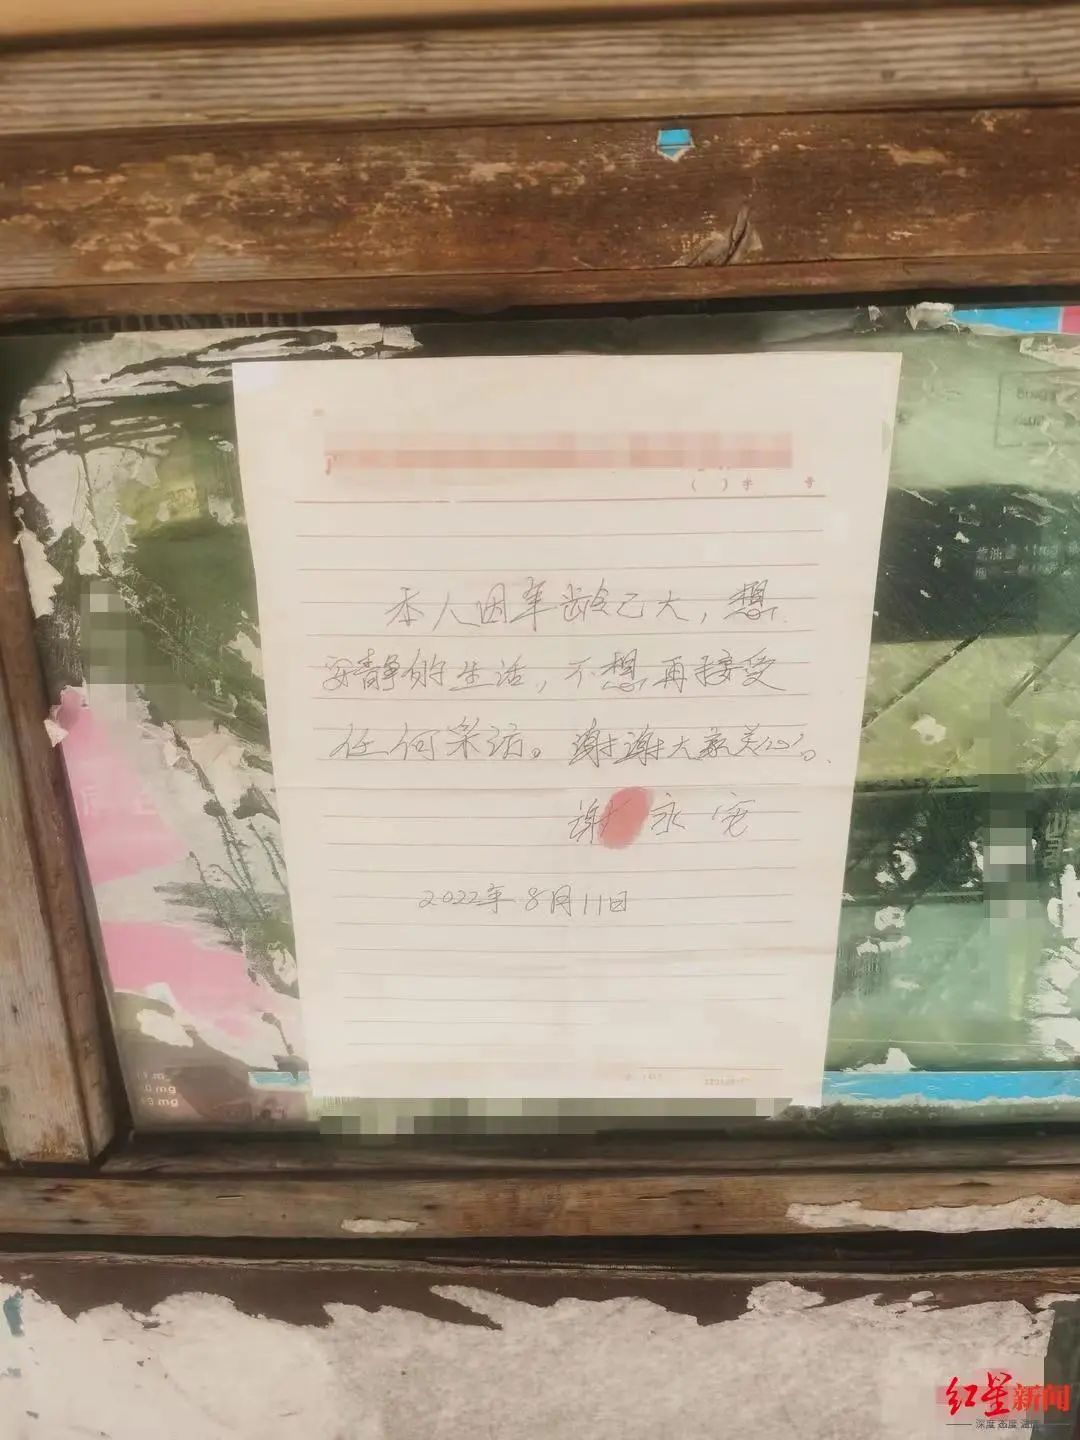 ( ) 字 号
本人因年龄已大，想
安静的生活，不想再接受
任何采访。谢谢大家关心。
谢永宽
2022年8月11日
mg
mg
红星新闻
深度 态度 温度